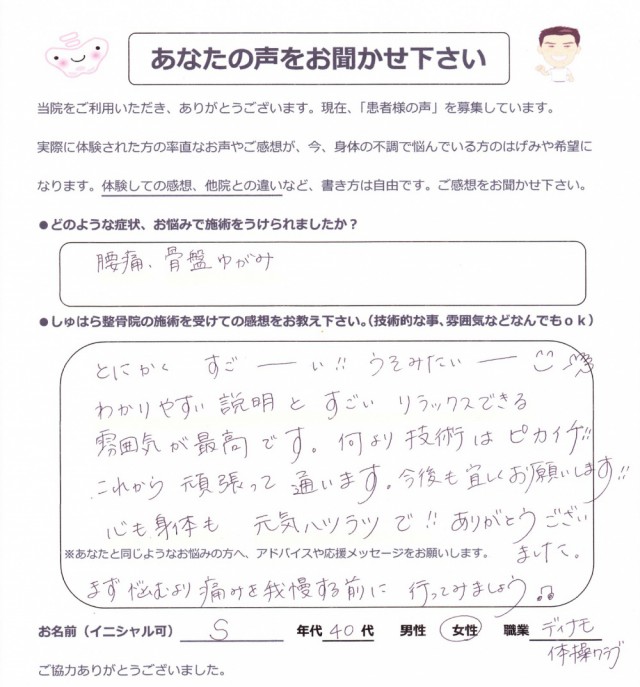 あなたの声をお聞かせ下さい
当院をご利用いただき、ありがとうございます。現在、「患者様の声」を募集しています。
実際に体験された方の率直なお声やご感想が、今、身体の不調で悩んでいる方のはげみや希望に
なります。体験しての感想、他院との違いなど、書き方は自由です。ご感想をお聞かせ下さい。
●どのような症状、お悩みで施術をうけられましたか？
腰痛、骨盤ゆがみ
●しゅはら整骨院の施術を受けての感想をお教え下さい。（技術的な事、雰囲気などなんでもｏｋ）
とにかく すごーい!! うそみたいー
わかりやすい説明と すごい リラックスできる
雰囲気が最高です。何より技術はピカイチ!!
これから 頑張って 通います。今後も宜しくお願いします!!
心も身体も 元気ハツラツで!! ありがとうござい
ました。
※あなたと同じようなお悩みの方へ、アドバイスや応援メッセージをお願いします。
まず悩むより痛みを我慢する前に 行ってみましょう♫
お名前（イニシャル可） S 年代 40 代 男性 女性 職業 ディナモ
体操クラブ
ご協力ありがとうございました。